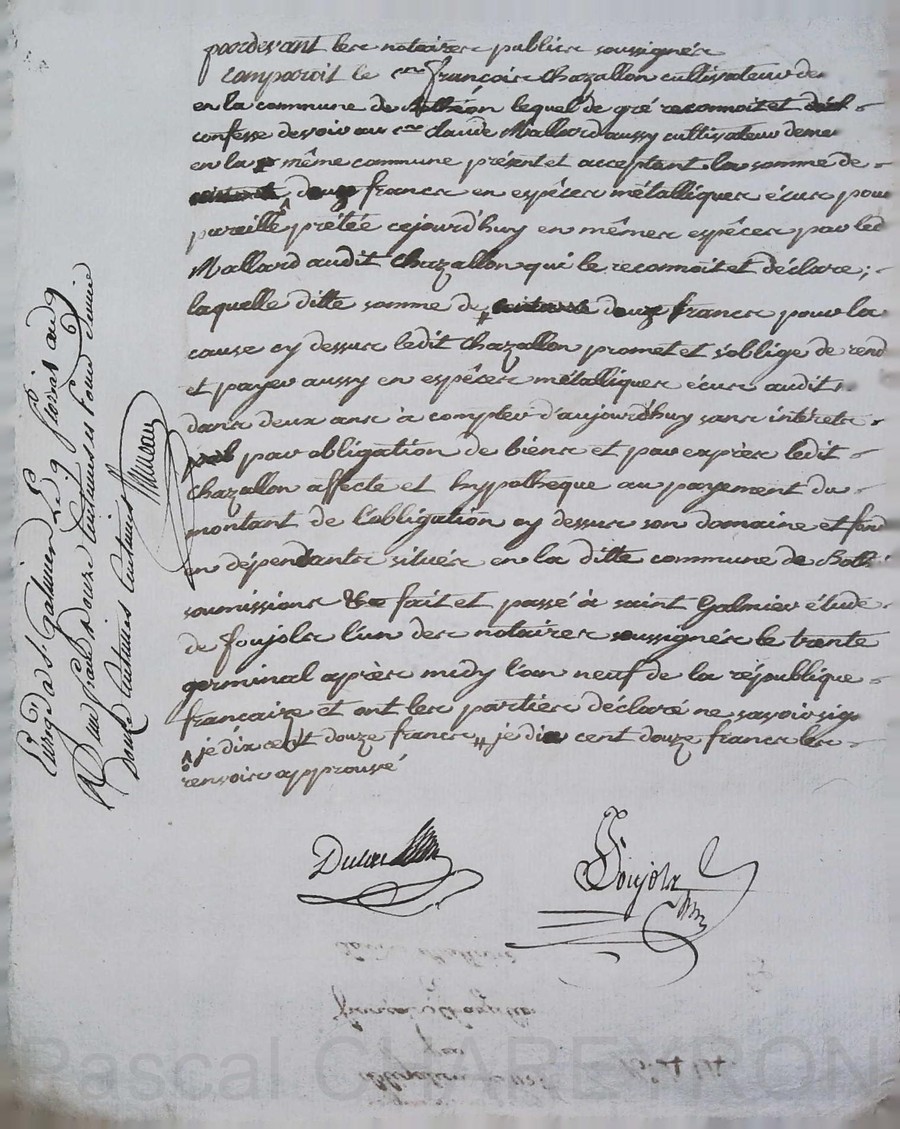 pardevant les notaires publics soussignés
Comparoit le cen françois Chazallon cultivateur de
en la commune de Bothéon lequel de gré reconnoit et
confesse devoir au cen Claude Mallard aussy cultivateur deme
en la même commune présent et acceptant la somme de
douze francs en espèces métalliques écus pour
pareille prêtée cejourd'huy en mêmes espèces par led
Mallard audit Chazallon qui le reconnoit et déclare ;
laquelle ditte somme de douze francs pour la
cause cy dessus ledit Chazallon promet et s'oblige de rend
et payer aussy en espèces métalliques écus audit
dans deux ans à compter d'aujourd'huy sans intérets
par obligation de biens et par exprès ledit
Chazallon affecte et hypothèque au payement du
montant de l'obligation cy dessus son domaine et fond
en dépendants situés en la ditte commune de Both
soumissions &a fait et passé à saint Galmier étude
de foujols l'un des notaires soussignés le trente
germinal après midy l'an neuf de la république
francaise et ont les parties déclaré ne savoir sig
je dix cent douze francs je dix cent douze francs les
renvois approuvé
Foujols
Enregé a St Galmier le 9 floréal an 9
R un franc douze centimes
douze centimes
Pascal CHAREYRON